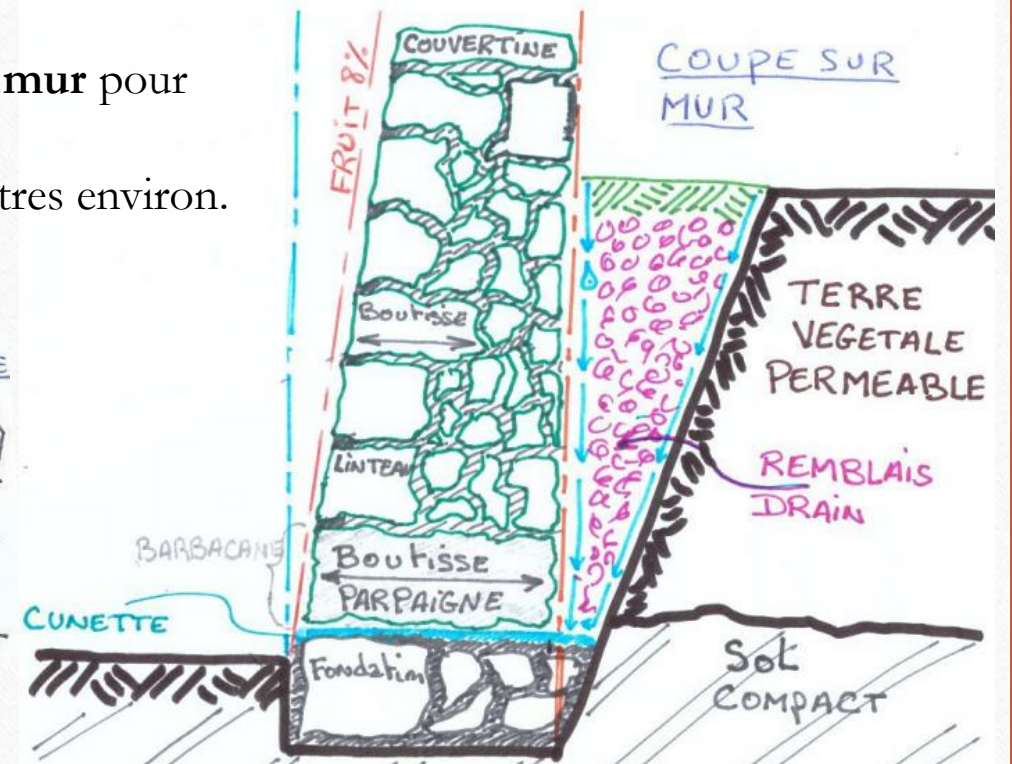 mur pour
tres environ.
COUPE SUR
MUR
FRUIT 8%
COUVERTINE
Boutisse
TERRE
VEGETALE
PERMEABLE
LINTEAU
REMBLAIS
DRAIN
BARBACANE
Boutisse
PARPAIGNE
CUNETTE
Fondation
Sol
COMPACT